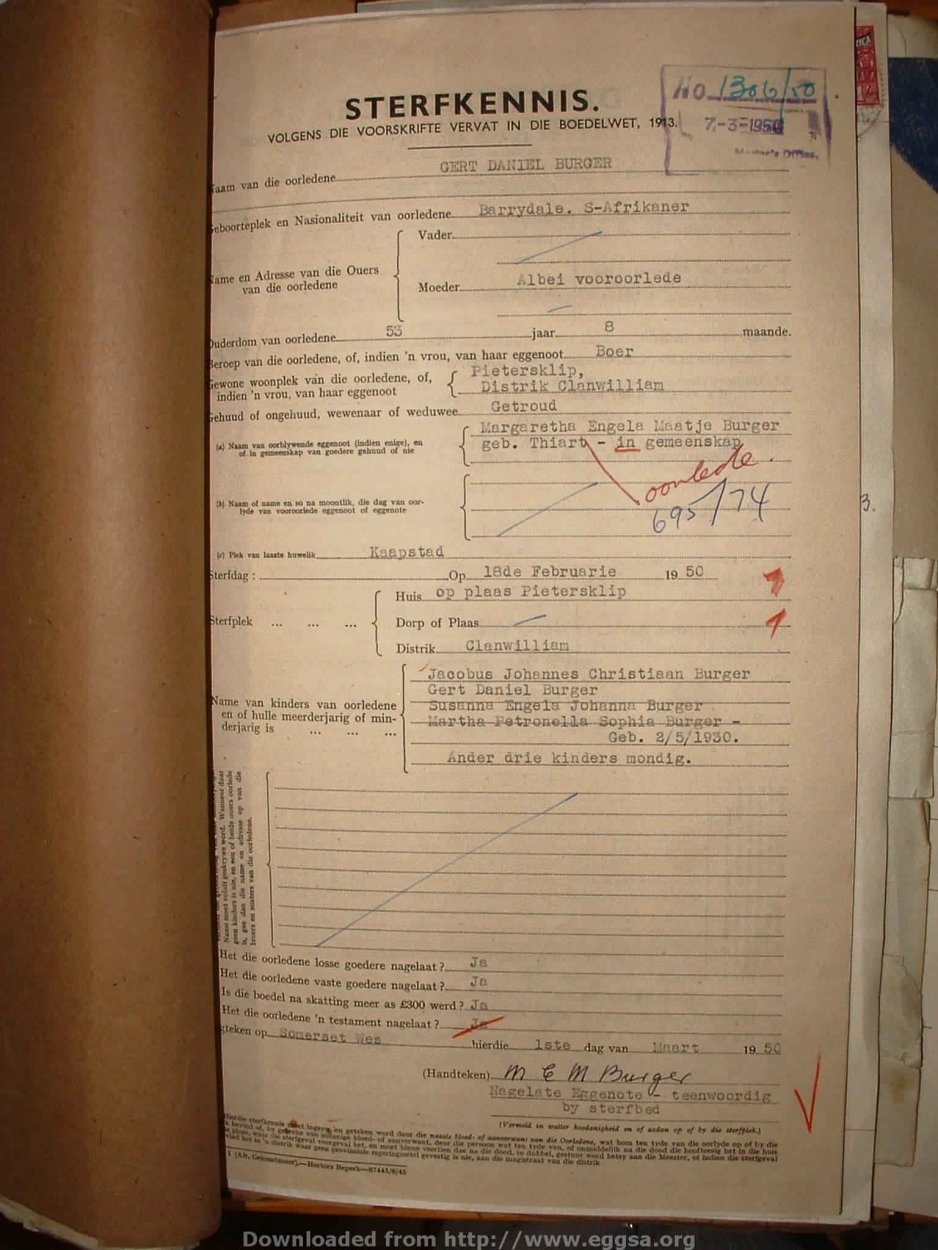 STERFKENNIS.
VOLGENS DIE VOORSKRIFTE VERVAT IN DIE BOEDELWET, 1913.
No 1306/50
7-3-1950
Master's Office,
Naam van die oorledene GERT DANIEL BURGER
Geboorteplek en Nasionaliteit van oorledene Barrydale. S-Afrikaner
Name en Adresse van die Ouers van die oorledene
Vader
Moeder Albei vooroorlede
Ouderdom van oorledene 53 jaar 8 maande.
Beroep van die oorledene, of, indien 'n vrou, van haar eggenoot Boer
Gewone woonplek van die oorledene, of, indien 'n vrou, van haar eggenoot
Pietersklip,
Distrik Clanwilliam
Gehuud of ongehuud, wewenaar of weduwee Getroud
(a) Naam van oorblywende eggenoot (indien enige), en
of in gemeenskap van goedere gehuud of nie
Margaretha Engela Maatje Burger
geb. Thiart - in gemeenskap
oorlede.
695/74
(b) Naam of name en so na moontlik, die dag van oor-
lyde van vooroorlede eggenoot of eggenote
(c) Plek van laaste huwelik Kaapstad
Sterfdag : Op 18de Februarie 19 50
Sterfplek ... ... ...
Huis op plaas Pietersklip
Dorp of Plaas
Distrik Clanwilliam
Name van kinders van oorledene
en of hulle meerderjarig of min-
derjarig is ... ... ...
Jacobus Johannes Christiaan Burger
Gert Daniel Burger
Susanna Engela Johanna Burger
Martha Petronella Sophia Burger -
Geb. 2/5/1930.
Ander drie kinders mondig.
Name moet voluit geskrywe word. Wanneer daar
geen kinders is nie, en een of beide ouers oorlede
is, gee dan die name en adresse op van die
broers en susters van die oorledene.
Het die oorledene losse goedere nagelaat ? Ja
Het die oorledene vaste goedere nagelaat ? Ja
Is die boedel na skatting meer as £300 werd ? Ja
Het die oorledene 'n testament nagelaat ? Ja
Geteken op Somerset Wes hierdie 1ste dag van Maart 19 50
(Handteken) M E M Burger
Nagelate Eggenote - teenwoordig
by sterfbed
(Vermeld in watter hoedanigheid en of aldan op of by die sterfplek.)
Downloaded from http://www.eggsa.org